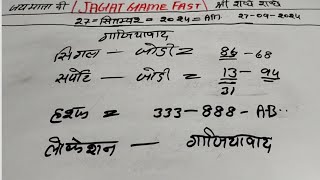 जय माता दी [JAGAT GAME FAST] श्री राधे राधे
27 = सितम्बर = 2024 = AM 27-09-2024
गाजियाबाद
सिंगल - जोडी = 86-68
सपोट - जोडी = 13-94
31
हरूफ = 333-888-A-B..
लोकेशन - गाजियाबाद